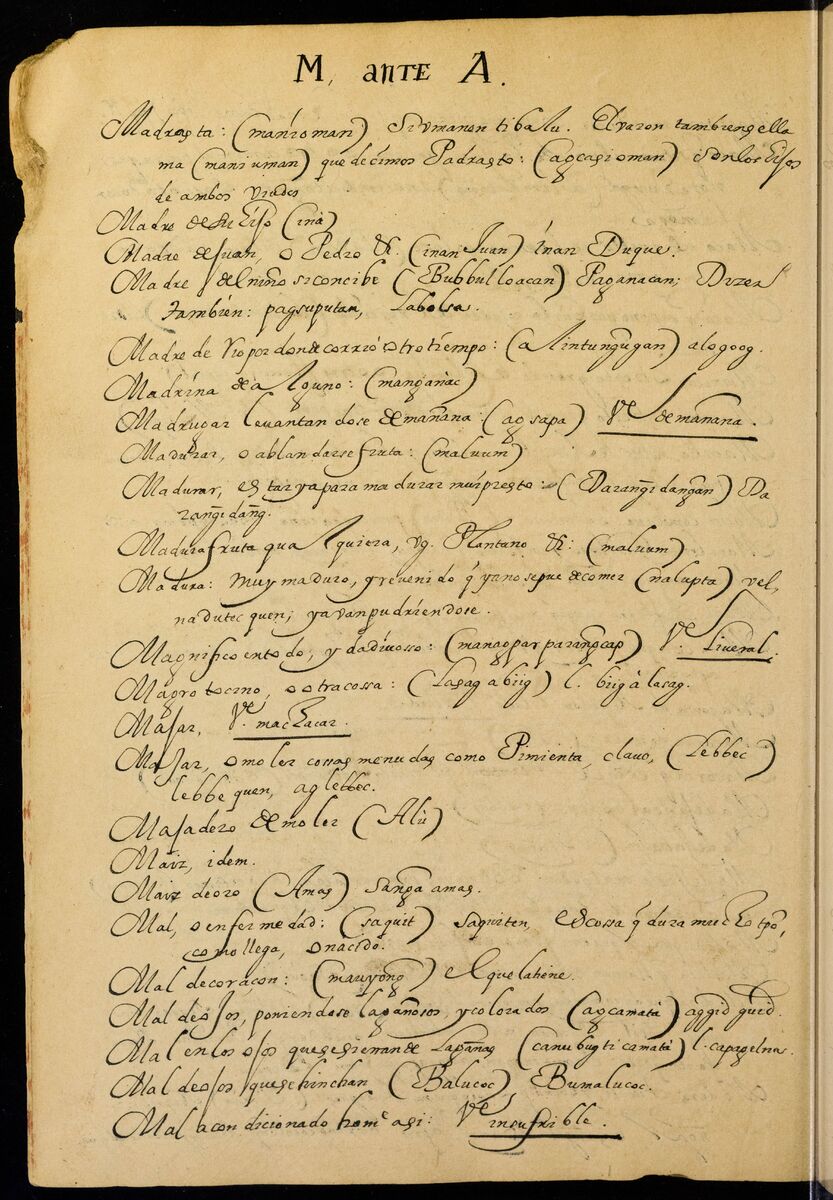 M, ante A.
Madrasta: (manioman) Siumanon tibalu. El varon tambiensella
ma (maniuman) que decimos Padrasto: (agcasioman) son los hijos
de ambos viudos
Madre de su hijo (ina)
Madre de Juan, o Pedro &. (inan Juan) inan Duque.
Madre del niño si concibe (Bubbulloacan) Paganacan; Dizen
tambien: pagsuputan, la bolsa.
Madre de rio por donde corrió otro tiempo: (alintungũgan) alogoog.
Madrina de alguno: (manganac)
Madrugar levantandose de mañana: (agsapa) Ve. de mañana.
Madurar, o ablandarse fruta: (maluum)
Madurar, estar ya para madurar mui presto: (Darangidangan) Da
rangidang.
Madura fruta qualquiera, vg. Plantano &: (maluum)
Madura: muy maduro, y revenido q̃ ya no se puede comer (nalupta) vel,
nadutec quen; ya van pudriendose.
Magnifico en todo, y dadivosso: (managparparangcap) Ve. liveral.
Magro tocino, o otra cossa: (lasag a biig) l. biig à lasag.
Majar, Ve. machacar.
Majar, o moler cossas menudas como Pimienta, clavo, (lebbec)
lebbe quen, aglebbec.
Majadero de moler (Alu)
Maiz, idem.
Maiz de oro (Amas) sanga amas.
Mal, o enfermedad: (saquit) saquiten, es cossa q̃ dura mucho tpõ,
como llega, o nacido.
Mal de coraçon: (mauyong) el que la tiene.
Mal de ojos, poniendose lagañosos, y colorados (agcamata) aggid guid.
Mal en los ojos que se hienan de lagañas (canubugticamata) l. capagelna.
Mal de ojos que se hinchan (Balucoc) Bumalucoc.
Mal acondicionado home assi: Ve insufrible.